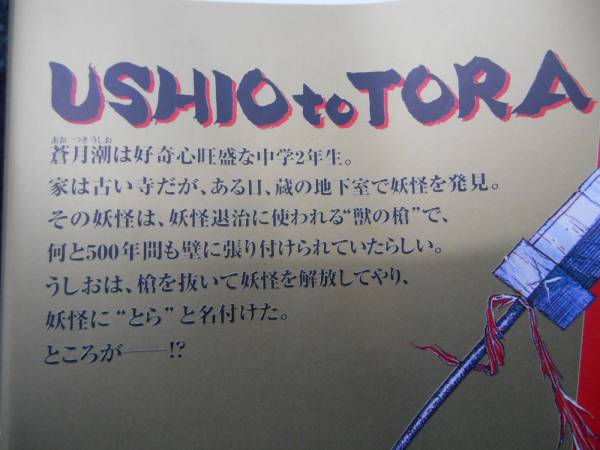 USHIO to TORA
あおつきうしお
蒼月潮は好奇心旺盛な中学2年生。
家は古い寺だが、ある日、蔵の地下室で妖怪を発見。
その妖怪は、妖怪退治に使われる“獣の槍”で、
何と500年間も壁に張り付けられていたらしい。
うしおは、槍を抜いて妖怪を解放してやり、
妖怪に“とら”と名付けた。
ところが──!?